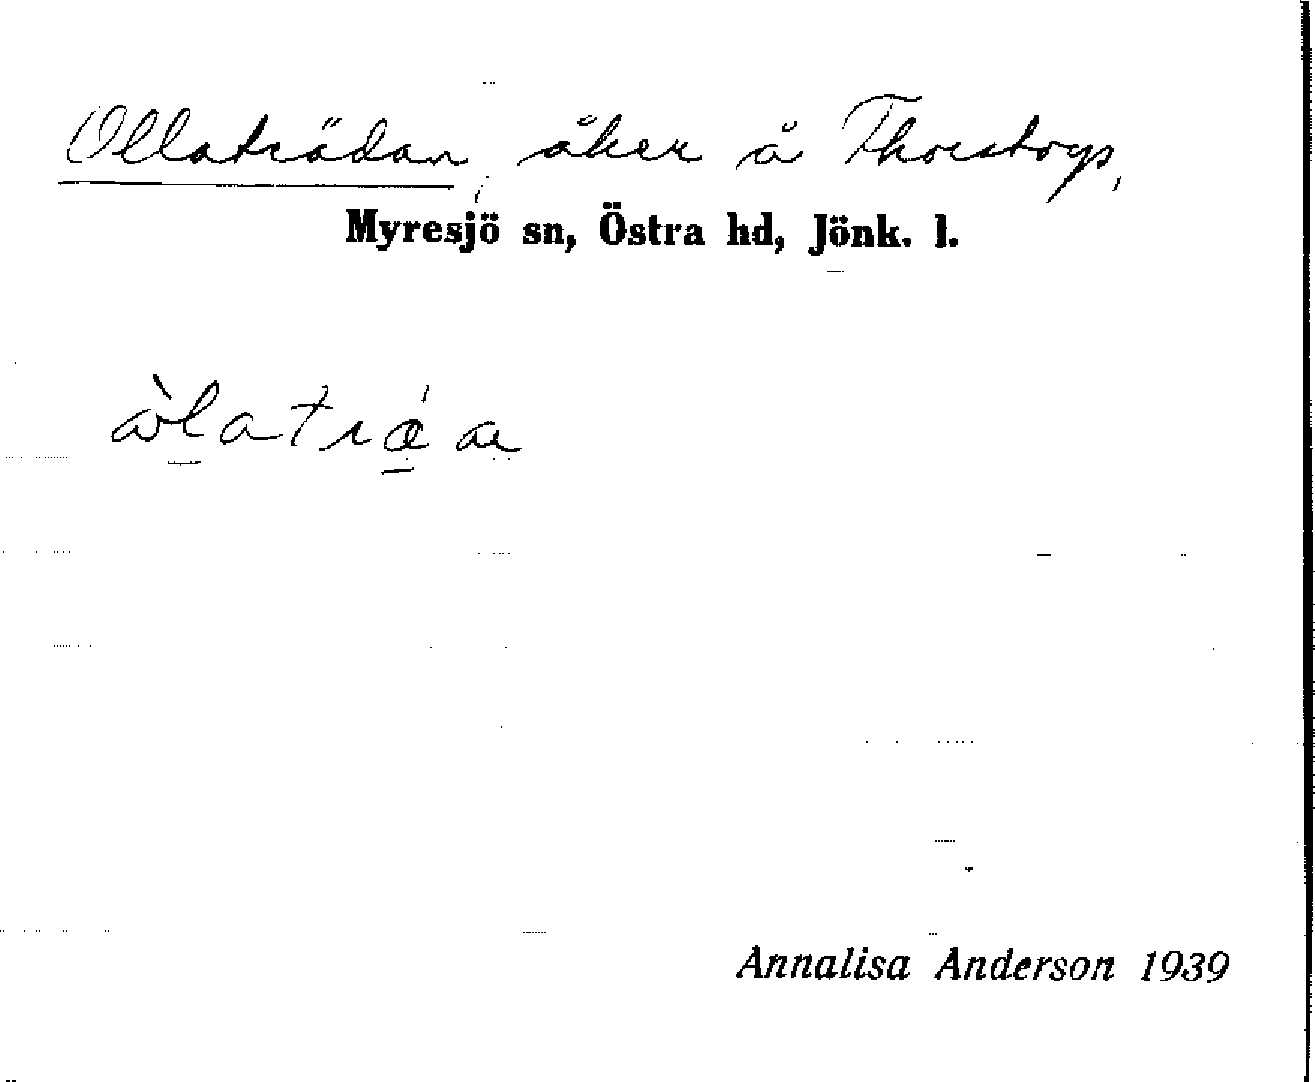 Ollaträdan, åker å Thorstorp,
Myresjö sn, Östra hd, Jönk. l.
Annalisa Anderson 1939